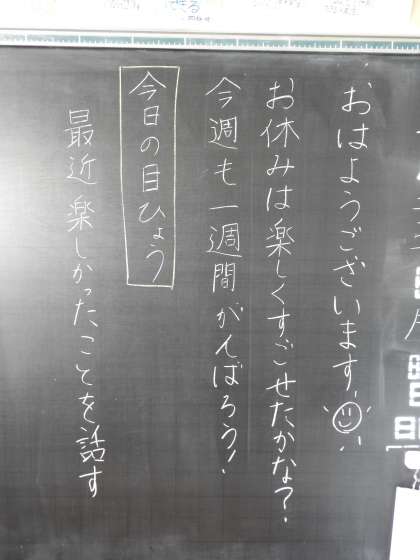 おはようございます。
お休みは楽しくすごせたかな？
今週も一週間がんばろう！
今日の目ひょう
最近楽しかったことを話す